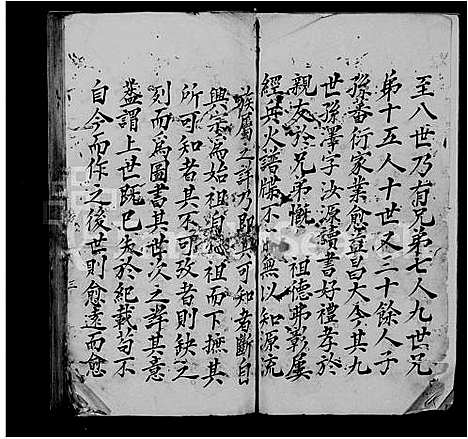 至八世乃有兄弟七人九世兄
弟十五人十世又二十餘人子
孫蕃衍家業愈益昌大今其九
世孫澤字汝原讀書好禮孝於
親友於兄弟慨 祖德弗彰屢
經兵火譜牒不 無以知源流
族屬之詳乃即其可知者斷自
興宗為始祖自 祖而下撫其
所可知者其不可攷者則缺之
刻而為圖書其世次之詳其意
蓋謂上世既已失於紀載苟不
自今而作之後世則愈遠而愈
三